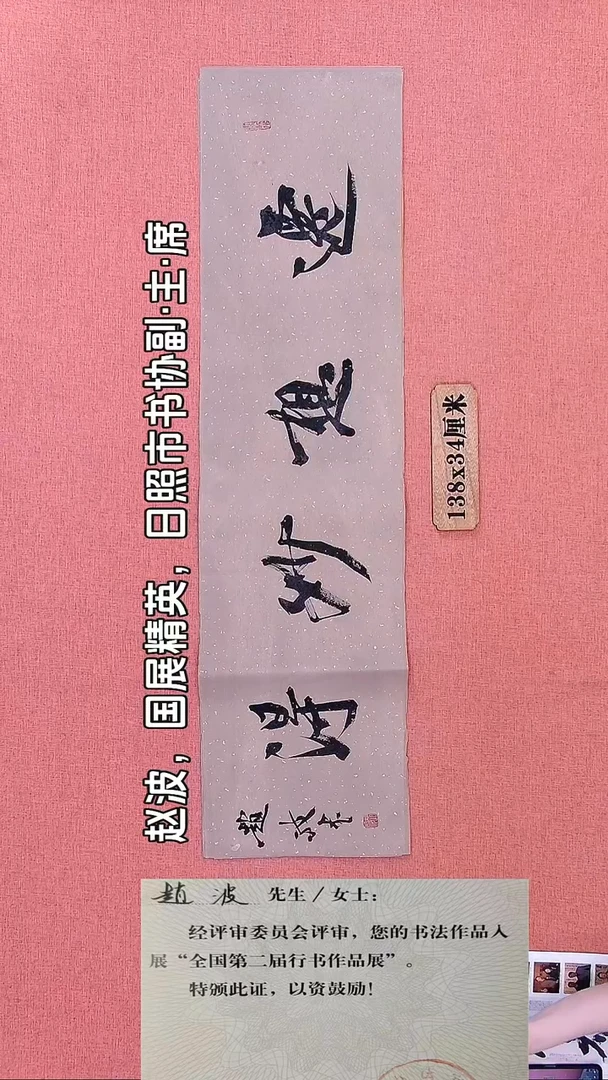 赵波，国展精英，日照市书协副·主·席
遷想妙得
趙波书
138x34厘米
趙波 先生／女士：
经评审委员会评审，您的书法作品入
展“全国第二届行书作品展”。
特颁此证，以资鼓励！